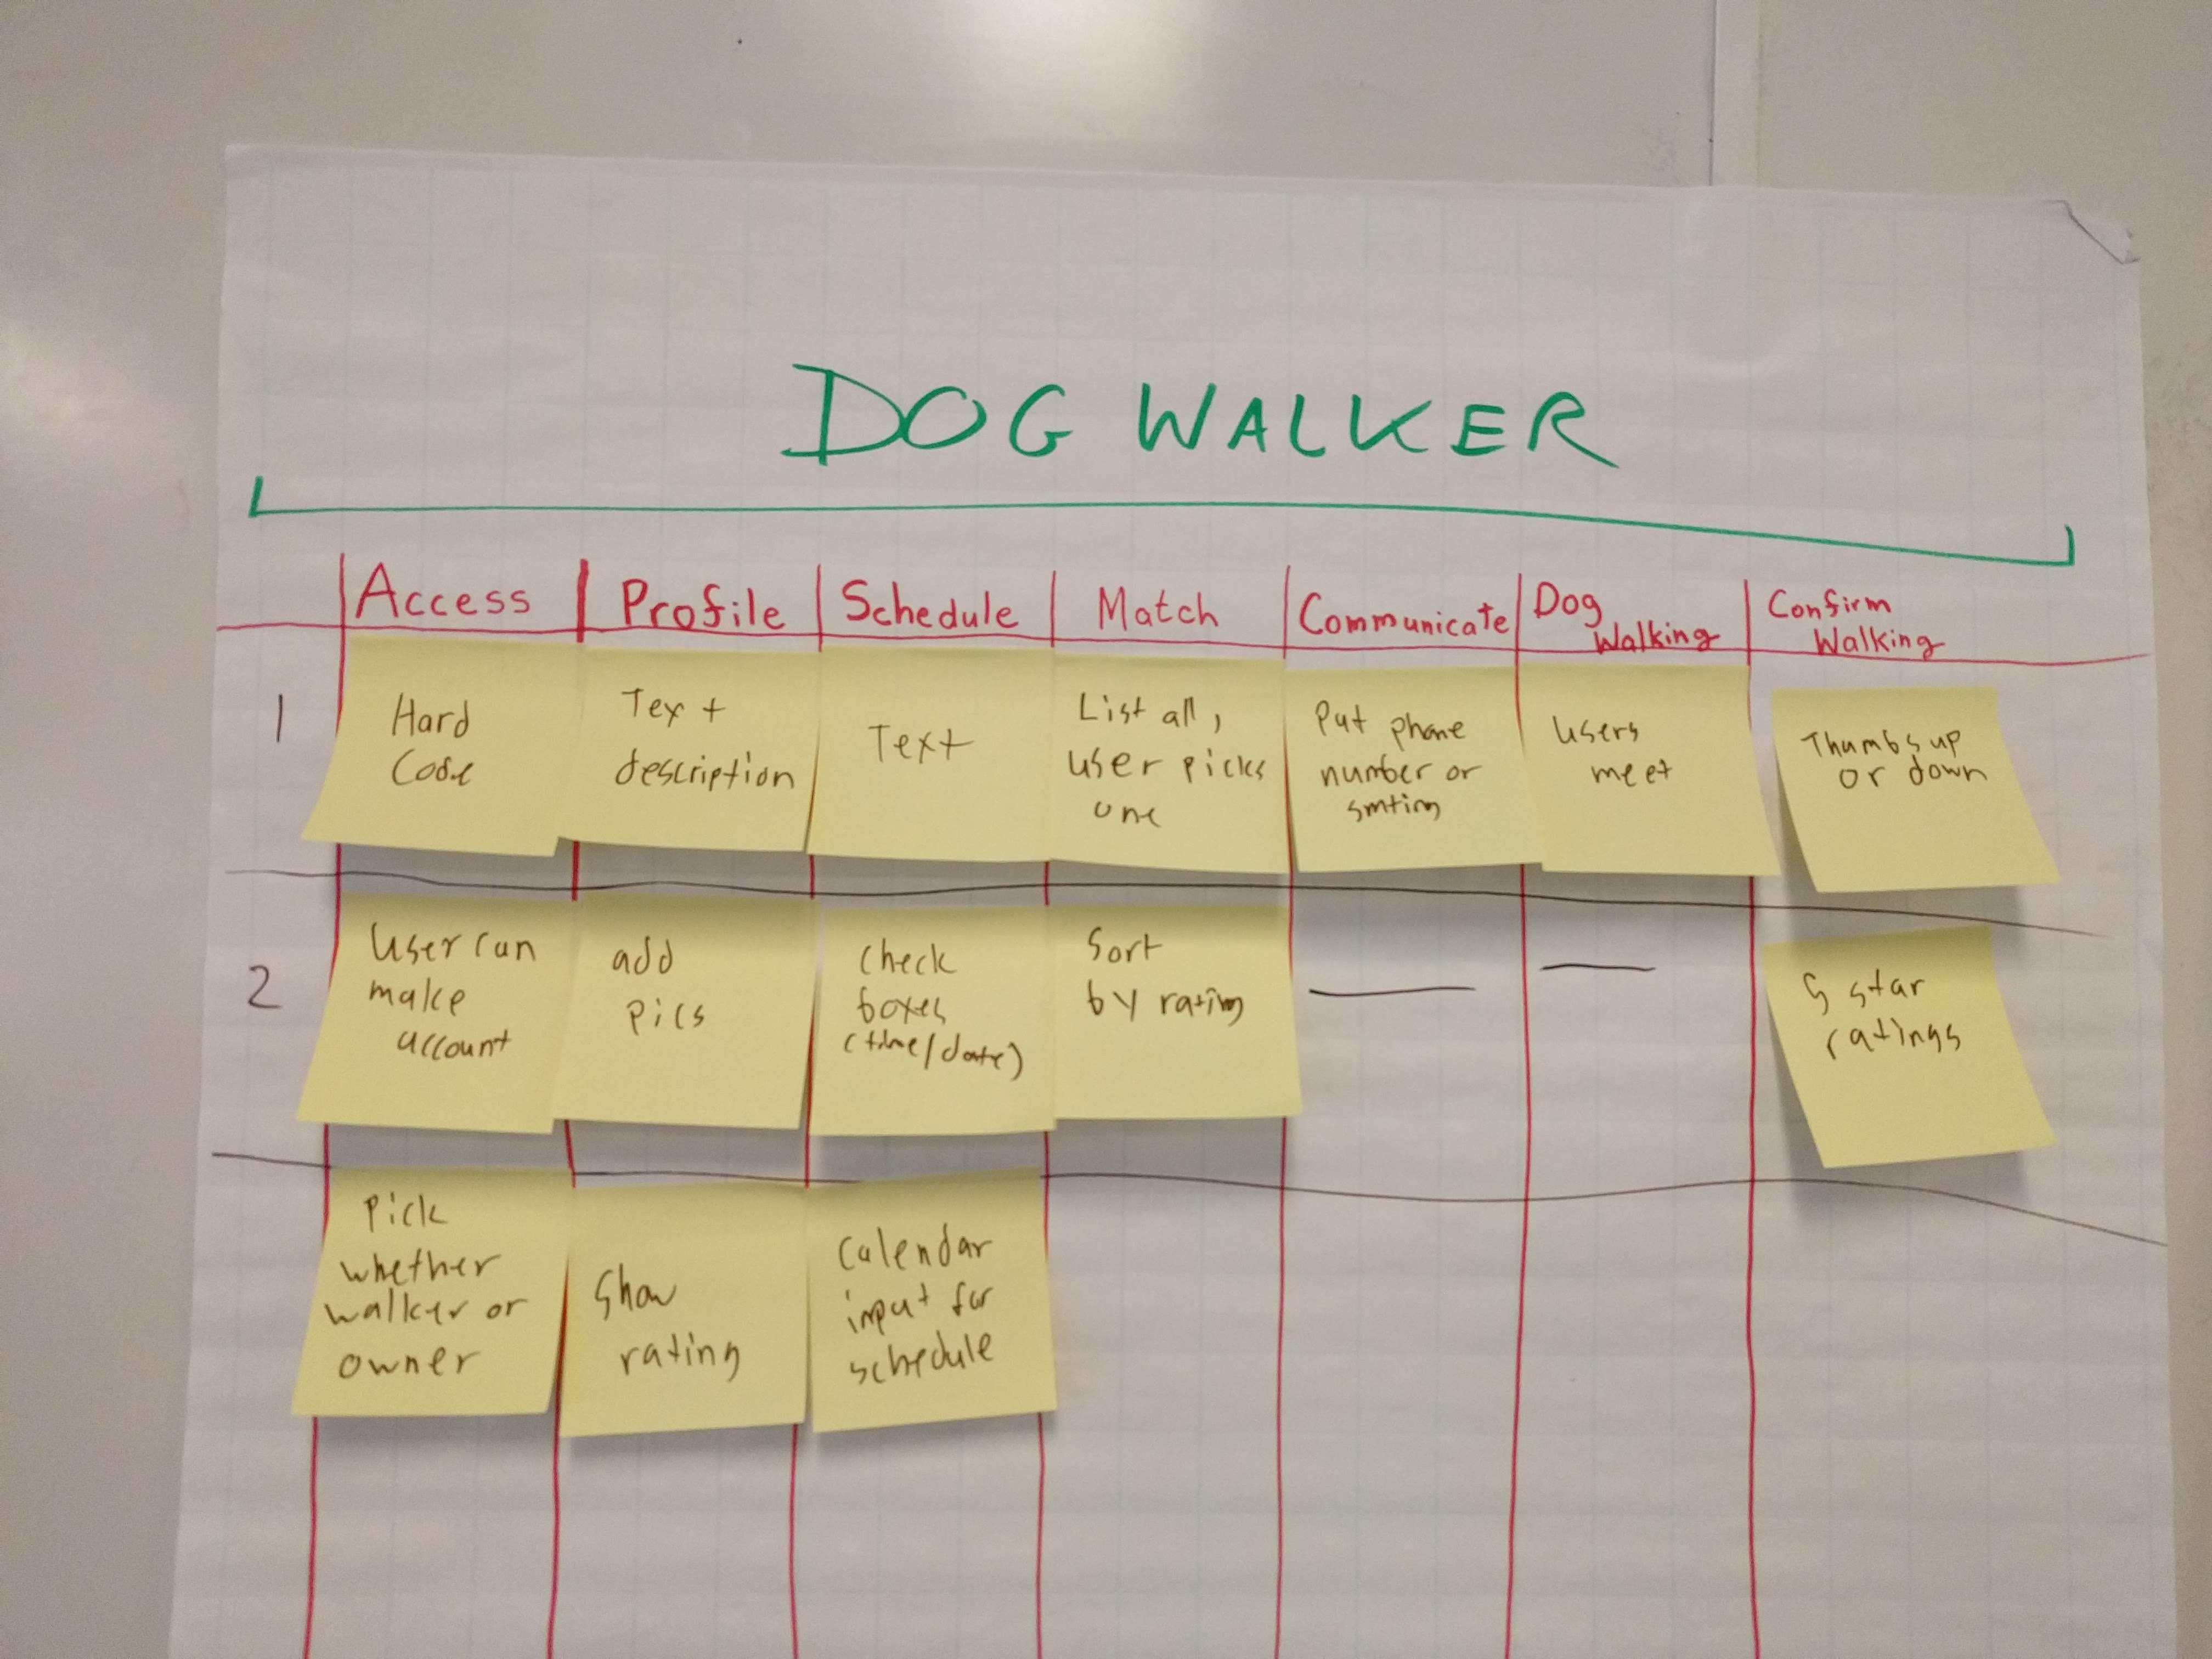 DOG WALKER
Access
Profile
Schedule
Match
Communicate
Dog
Walking
Confirm
Walking
1
Hard
Code
Text
description
Text
List all,
user picks
one
Put phone
number or
smting
Users
meet
Thumbs up
or down
2
User can
make
account
add
pics
check
boxes
(time/date)
Sort
by rating
5 star
ratings
Pick
whether
walker or
owner
Show
rating
Calendar
input for
schedule